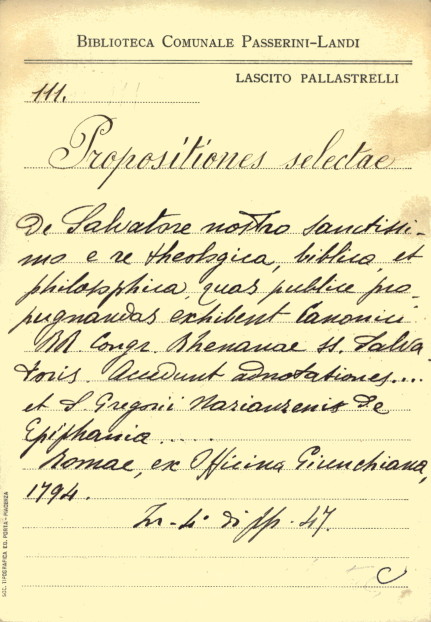 BIBLIOTECA COMUNALE PASSERINI-LANDI
LASCITO PALLASTRELLI
111.
Propositiones selectae
De Salvatore nostro sanctissi-
mo e re theologica, biblica et
philosophica, quas publice pro-
pugnandas exhibent Canonici
RR. Congr. Rhenanae SS. Salva
toris. Accedunt adnotationes....
et S. Gregorii Nazianzenis De
Epiphania.....
Romae, ex Officina Giunchiana,
1794.
In-4° di pp. 47.
C
SOC. TIPOGRAFICA ED. PORTA-PIACENZA